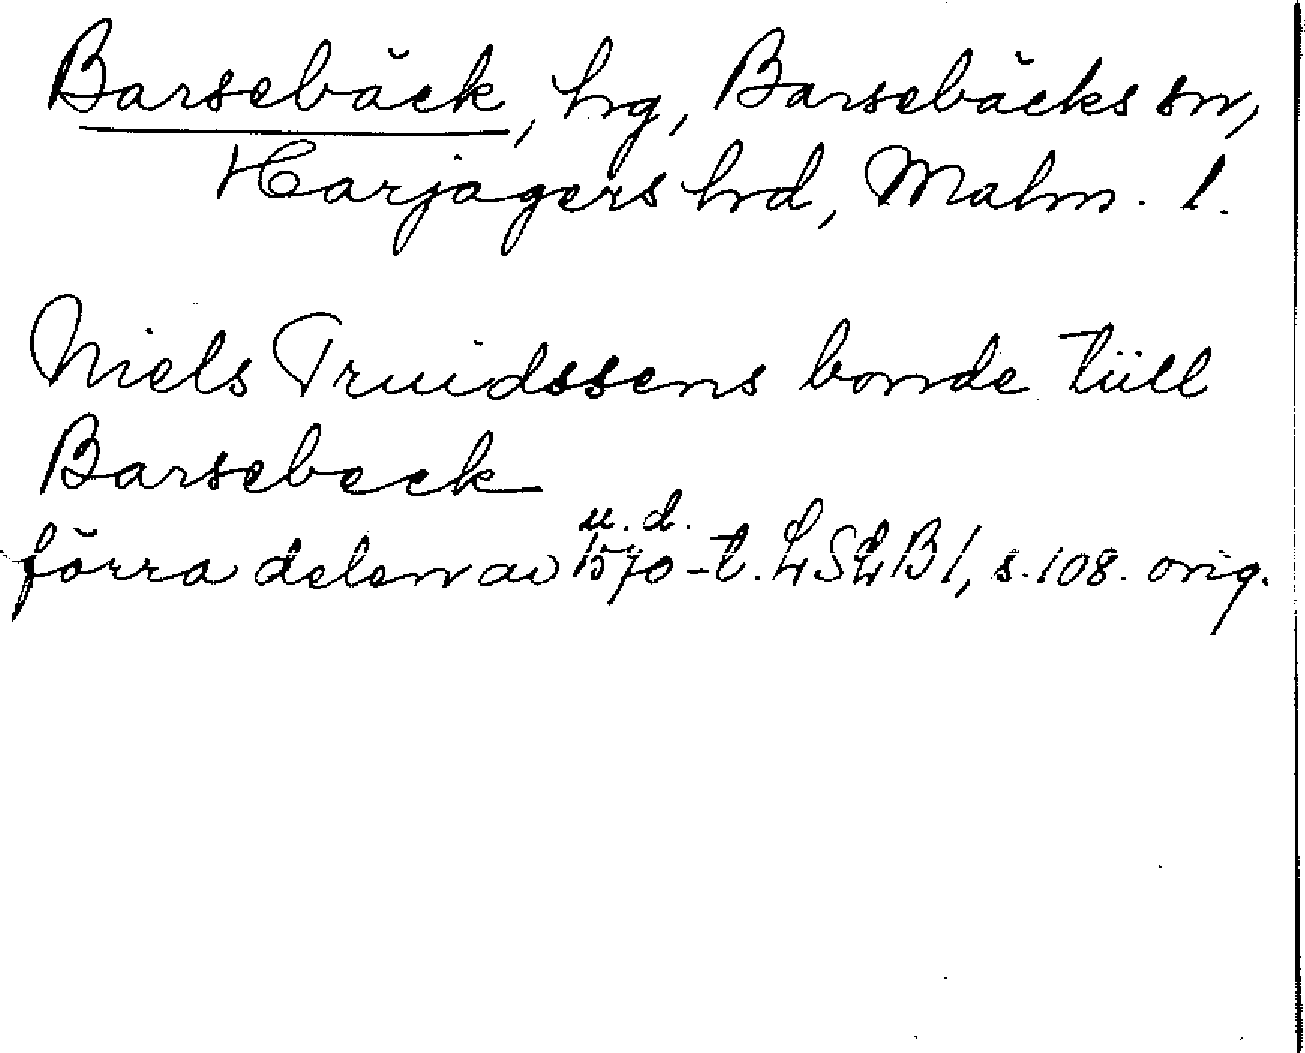 Barsebäck, hg, Barsebäcks sn,
Harjagers hd, Malm. l.
Niels Truidssens bonde tüll
Barsebeck
u. d.
förra delen av 1570-t. LSLB 1, s. 108. orig.